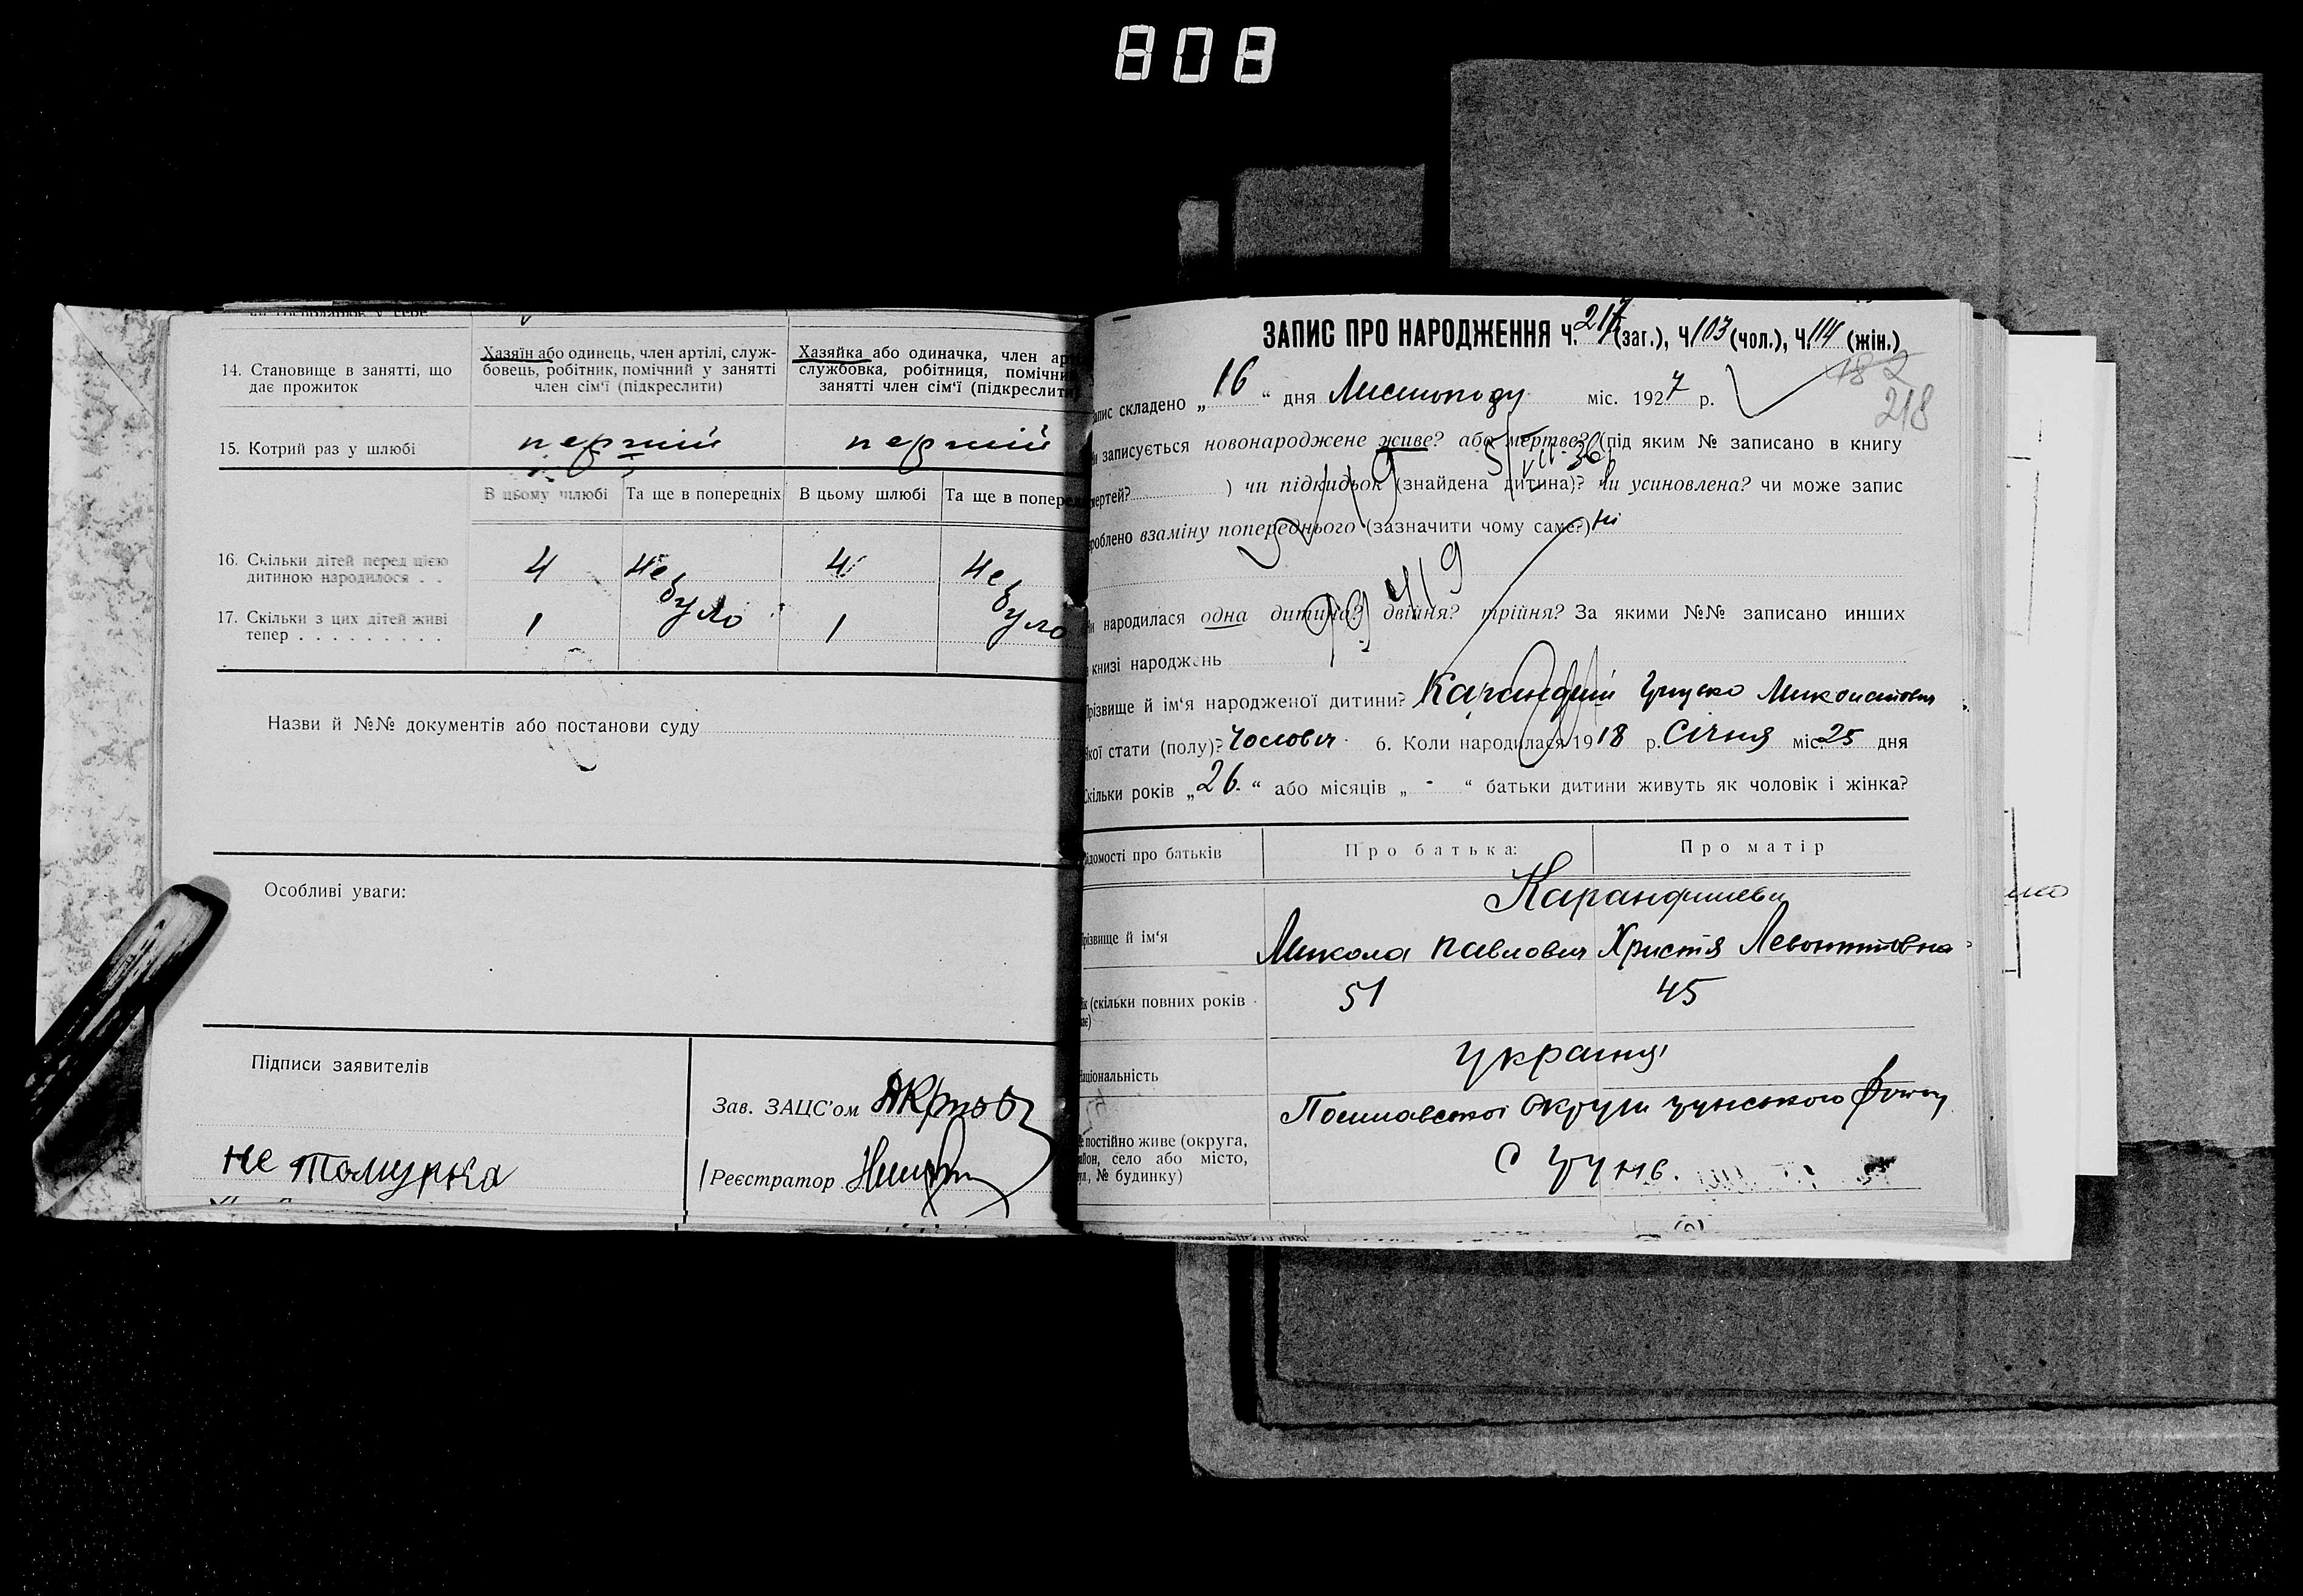 808
14. Становище в занятті, що дає прожиток
Хазяїн або одинець, член артілі, служ-
бовець, робітник, помічний у занятті
член сім'ї (підкреслити)
Хазяйка або одиначка, член
службовка, робітниця,
занятті член сім'ї (підкреслити
15. Котрий раз у шлюбі перший перший
В цьому шлюбі Та ще в попередніх В цьому шлюбі Та ще в
16. Скільки дітей перед цією
дитиною народилося . . 4 не було 4 не було
17. Скільки з цих дітей живі
тепер . . . . . . . . . 1 1
Назви й №№ документів або постанови суду
Особливі уваги:
Підписи заявителів
Зав. ЗАЦС'ом
не
Реєстратор
ЗАПИС ПРО НАРОДЖЕННЯ Ч. 217 (заг.), Ч. 103 (чол.), Ч. 114 (жін.)
182
218
складено „ 16 “ дня Листопаду міс. 1927 р.
записується новонароджене живе? або мертве? (під яким № записано в книгу
) чи підкидьок (знайдена дитина)? чи усиновлена? чи може запис
взаміну попереднього (зазначити чому саме?) ні
народилася одна дитина? двійня? трійня? За якими №№ записано инших
книзі народжень
й ім'я народженої дитини? Грицько Миколайович
стати (полу)? Чоловіч. 6. Коли народилася 1918 р. Січня міс. 25 дня
років „ 26. “ або місяців „ - “ батьки дитини живуть як чоловік і жінка?
про батьків Про батька: Про матір
й ім'я Микола Павлович Христя Левонтіївна
(скільки повних років 51 45
україн
постійно живе (округа,
село або місто,
№ будинку)
Полтавської Округи
с